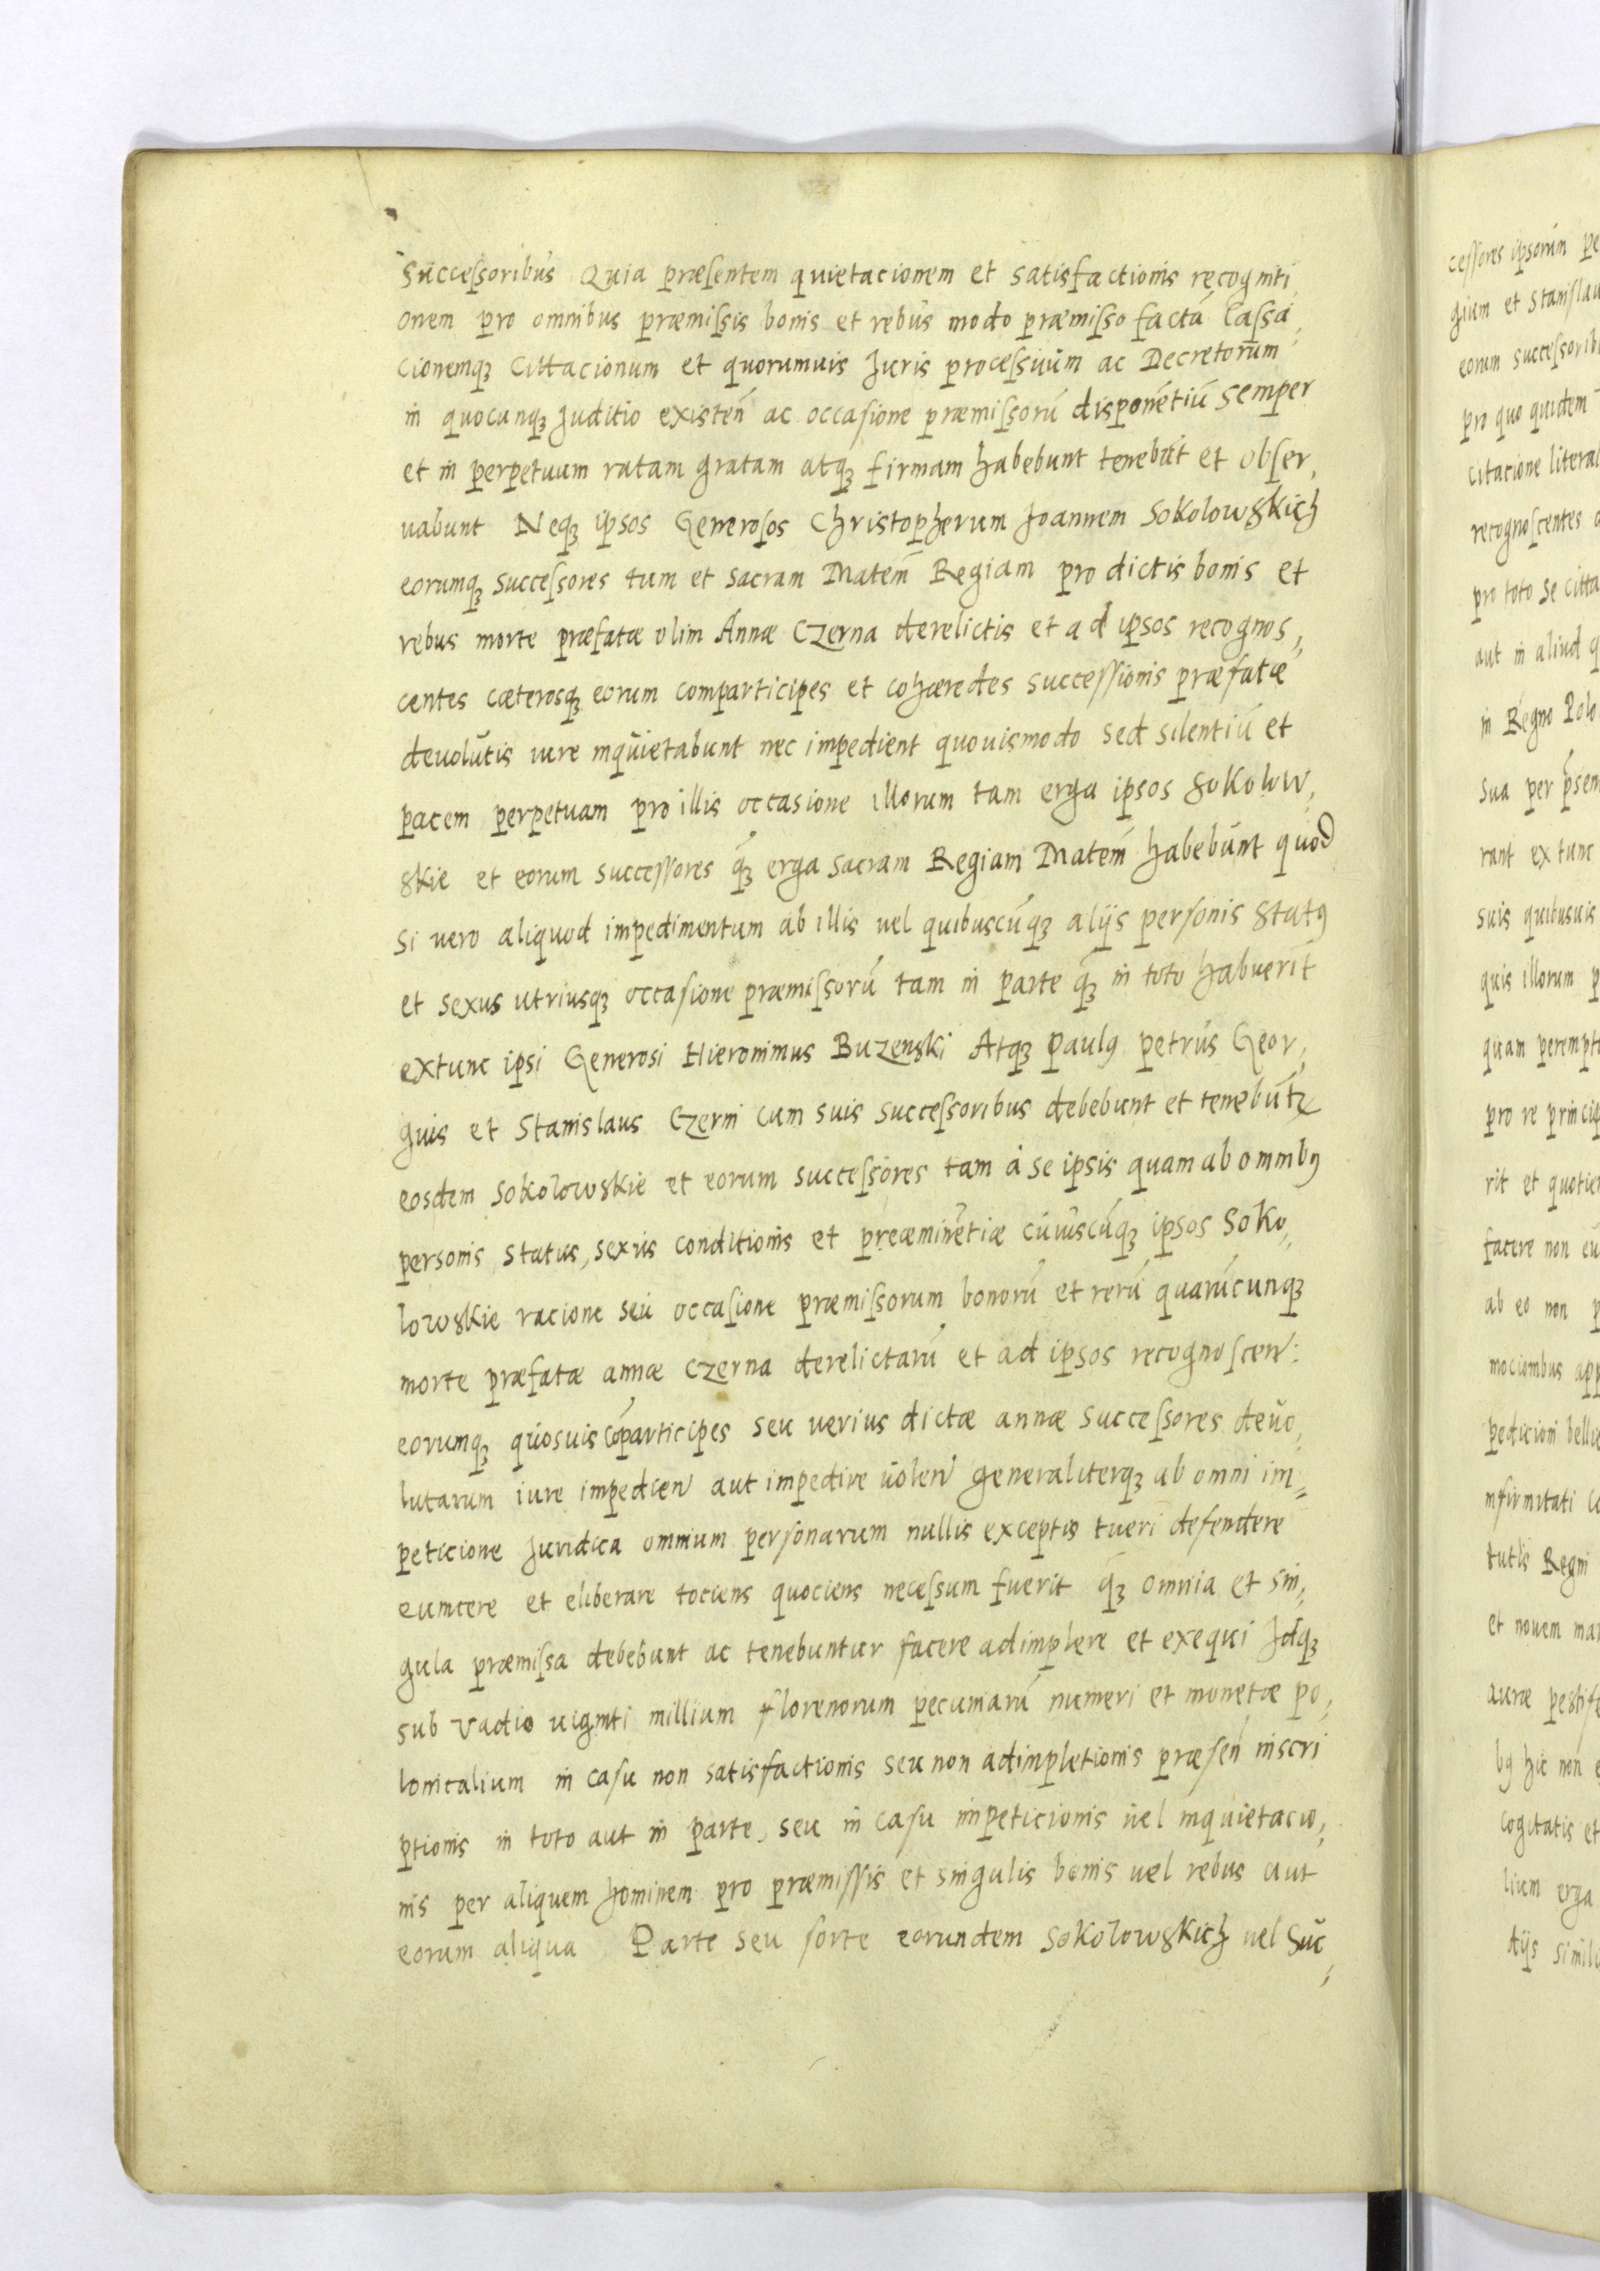 Succeſsoribus Quia præſentem quietacionem et satisfactionis recogniti,
onem pro omnibus præmiſsis bonis et rebus modo præmiſso factā Caſsa,
cionemqꝫ Cittacionum et quorumuis Juris proceſsuum ac Decretorum
in quocunqꝫ Juditio existeñ ac occaſione præmiſsorū disponētiū semper
et in perpetuum ratam gratam atqꝫ firmam habebunt tenebūt et obſer,
uabunt Neqꝫ ipsos Generoſos Christopherum Joannem Sokolowskich
eorumqꝫ succeſsores tum et sacram Matem̃ Regiam pro dictis bonis et
rebus morte præfatæ olim Annæ Czerna derelictis et ad ipsos recognos,
centes cæterosqꝫ eorum comparticipes et cohæredes succeſſionis præfatæ
deuolutis iure inquietabunt nec impedient quouismodo sed silentiū et
pacem perpetuam pro illis occasione illorum tam erga ipsos Sokolow,
skie et eorum succeſſores q̄ꝫ erga sacram Regiam Matem̃ habebunt quod
si uero aliquod impedimentum ab illis uel quibuscūqꝫ alijs perſonis statꝰ
et sexus utriusqꝫ occaſione præmiſsorū tam in parte q̄ꝫ in toto habuerīt
extunc ipsi Generosi Hieronimus Buzenski Atqꝫ Paulꝰ Petrus Geor,
gius et Stanislaus Czerni cum suis succeſsoribus debebunt et tenebūtr
eosdem Sokolowskie et eorum succeſsores tam à se ipsis quam ab omnibꝰ
personis status, sexus conditionis et preæminētiæ cuiuscūqꝫ ipsos Soko,
lowskie racione seu occaſione præmiſsorum bonorū et rerū quarūcunqꝫ
morte præfatæ annæ Czerna derelictarū et ad ipsos recognoſcen:
eorumqꝫ quosuis cōparticipes seu uerius dictæ annæ succeſsores deuo,
lutarum iure impedien̄ aut impedire uolen̄ generaliterqꝫ ab omni im,
peticione Juridica omnium perſonarum nullis exceptis tueri defendere
euincere et eliberare tociens quociens neceſsum fuerit q̄ꝫ omnia et sin,
gula præmiſsa debebunt ac tenebuntur facere adimplere et exequi Jdqꝫ
sub Vadio uiginti millium florenorum pecuniarū numeri et monetæ po,
lonicalium in caſu non satisfactionis seu non adimpletionis præſen̄ inscri
ptionis in toto aut in parte, seu in caſu impeticionis uel inquietacio,
nis per aliquem hominem pro præmiſſis et singulis bonis uel rebus aut
eorum aliqua Parte seu ſorte eorundem Sokolowskich uel Suc,
ceſſores ipsorum
gium et Stanislau
eorum succeſsorib
pro quo quidem
citacione litera
recognoſcentes
pro toto se citta
aut in aliud
in Regno Polo
sua per
rant extunc
suis quibusuis
quis illorum
quam perempt
pro re princip
rit et quotien
facere non
ab eo non
mocionibus
pedicioni
infirmitati
tutis Regni
et nouem
auræ
bꝰ hic non
cogitatis et
lium erga
dijs simil